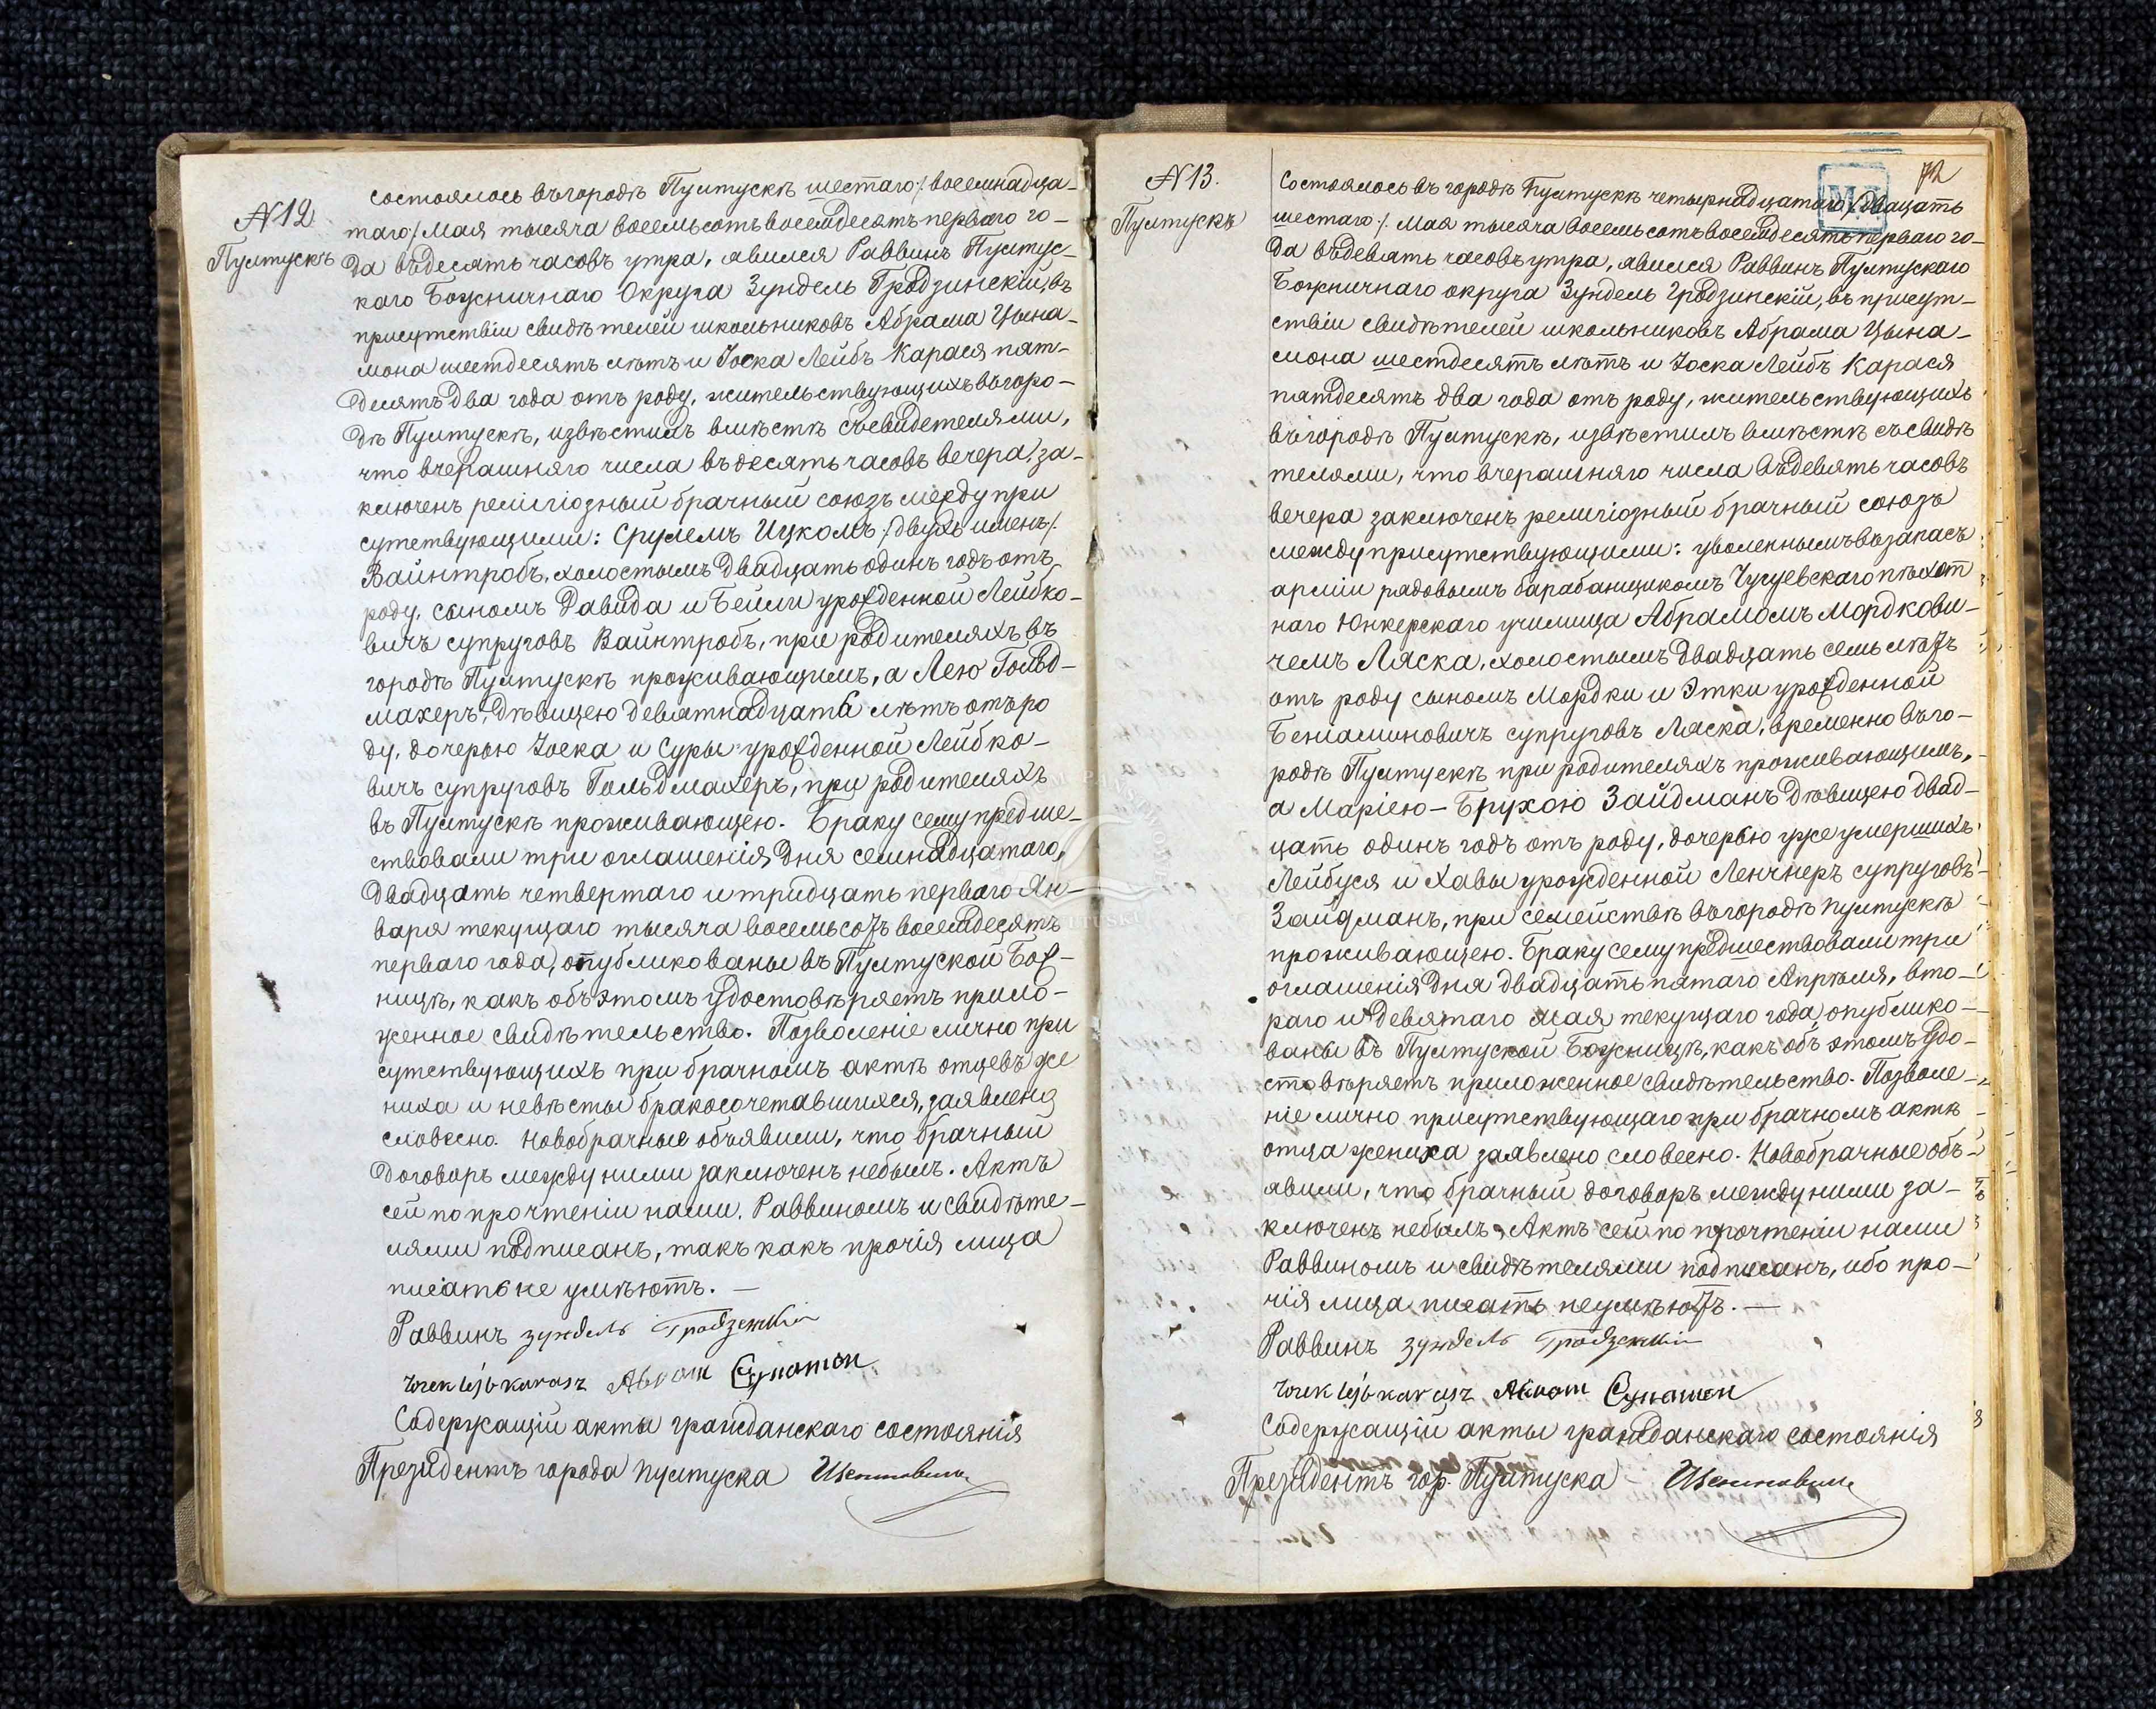 N 12
Пултускъ
состоялось въ городѣ Пултускѣ шестаго /: восемнадца-
таго / Мая тысяча восемьсотъ восемдесятъ перваго го-
да въ десять часовъ утра, явился Раввинъ Пултус-
каго Божничнаго Округа Зундель Гродзинскій, въ
присутствіи свидѣтелей школьниковъ Абрама Цына-
мона шестдесятъ лѣтъ и Іоска Лейбъ Карася пят-
десятъ два года отъ роду, жительствующихъ въ горо-
дѣ Пултускѣ, извѣстилъ вмѣстѣ съ свидетелями,
что вчерашняго числа въ десять часовъ вечера, за-
ключенъ религіозный брачный союзъ между при
сутствующими: Срулемъ Ицкомъ /: двухъ именъ /:
Вайнтробъ, холостымъ двадцать одинъ годъ отъ
роду, сыномъ Давида и Бейли урожденной Лейбко-
вичъ супруговъ Вайнтробъ, при родителяхъ въ
городѣ Пултускѣ проживающимъ, а Лею Гольд-
махеръ, дѣвицею девятнадцать лѣтъ отъ ро
ду, дочерью Іоска и Суры урожденной Лейбко-
вичъ супруговъ Гольдмахеръ, при родителяхъ
въ Пултускѣ проживающею. Браку сему предше-
ствовали три оглашенія дня семнадцатаго,
двадцать четвертаго и тридцать перваго Ян-
варя текущаго тысяча восемьсотъ восемдесятъ
перваго года, опубликованы въ Пултуской Бож-
ницѣ, какъ объ этомъ удостовѣряетъ прило-
женное свидѣтельство. Позволеніе лично при
сутствующихъ при брачномъ актѣ отцевъ же
ниха и невѣсты бракосочетавшихся, заявлено
словесно. Новобрачные объявили, что брачный
договоръ между ними заключенъ небылъ. Актъ
сей по прочтеніи нами, Раввиномъ и свидѣте-
лями подписанъ, такъ какъ прочія лица
писать не умѣютъ. —
Раввинъ Зундель Гродзенскій
Josek Lejb Karasz Abram Cynamon
Содержащій акты гражданскаго состоянія
Президентъ города Пултуска
72
N 13.
Пултускъ
Состоялось въ городѣ Пултускѣ четырнадцатаго / двацать
шестаго /: Мая тысяча восемьсотъ восемдесятъ перваго го-
да въ девять часовъ утра, явился Раввинъ Пултускаго
Божничнаго округа Зундель Гродзинскій, въ присут-
ствіи свидѣтелей школьниковъ Абрама Цына-
мона шестдесятъ лѣтъ и Іоска Лейбъ Карася
пятдесятъ два года отъ роду, жительствующихъ
въ городѣ Пултускѣ, извѣстилъ вмѣстѣ съ свидѣ
телями, что вчерашняго числа въ девять часовъ
вечера заключенъ религіозный брачный союзъ
между присутствующими: уволеннымъ въ запасъ
арміи рядовымъ барабанщикомъ Чугуевскаго пѣхот
наго Юнкерскаго училища Абрамомъ Мордкови-
чемъ Ляска, холостымъ двадцать семь лѣтъ
отъ роду сыномъ Мордки и Этки урожденной
Беніаминовичъ супруговъ Ляска, временно въ го-
родѣ Пултускѣ при родителяхъ проживающимъ,
а Маріею-Брухою Зайдманъ дѣвицею двад-
цать одинъ годъ отъ роду, дочерью уже умершихъ
Лейбуся и Хавы урожденной Ленчнеръ супруговъ
Зайдманъ, при семействѣ въ городѣ Пултускѣ
проживающею. Браку сему предшествовали три
оглашенія дня двадцать пятаго Апрѣля, вто-
раго и девятаго мая текущаго года опублико-
ваны въ Пултуской Божницѣ, какъ объ этомъ удо-
стовѣряетъ приложенное свидѣтельство. Позволе-
ніе лично присутствующаго при брачномъ актѣ
отца жениха заявлено словесно. Новобрачные объ-
явили, что брачный договоръ между ними за-
ключенъ небылъ. Актъ сей по прочтеніи нами
Раввиномъ и свидѣтелями подписанъ, ибо про-
чія лица писать неумѣютъ. —
Раввинъ Зундель Гродзенскій
Josek Lejb Karasz Abram Cynamon
Содержащій акты гражданскаго состоянія
Президентъ гор. Пултуска